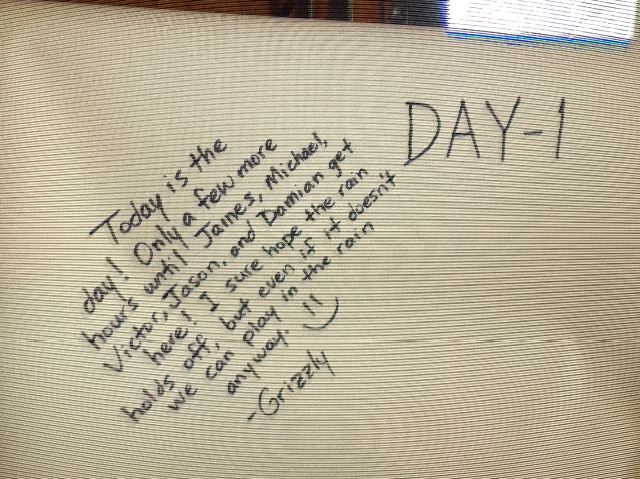 DAY-1
Today is the
day! Only a few more
hours until James, Michael,
Victor, Jason, and Damian get
here! I sure hope the rain
holds off, but even if it doesn't
we can play in the rain
anyway. !!
-Grizzly